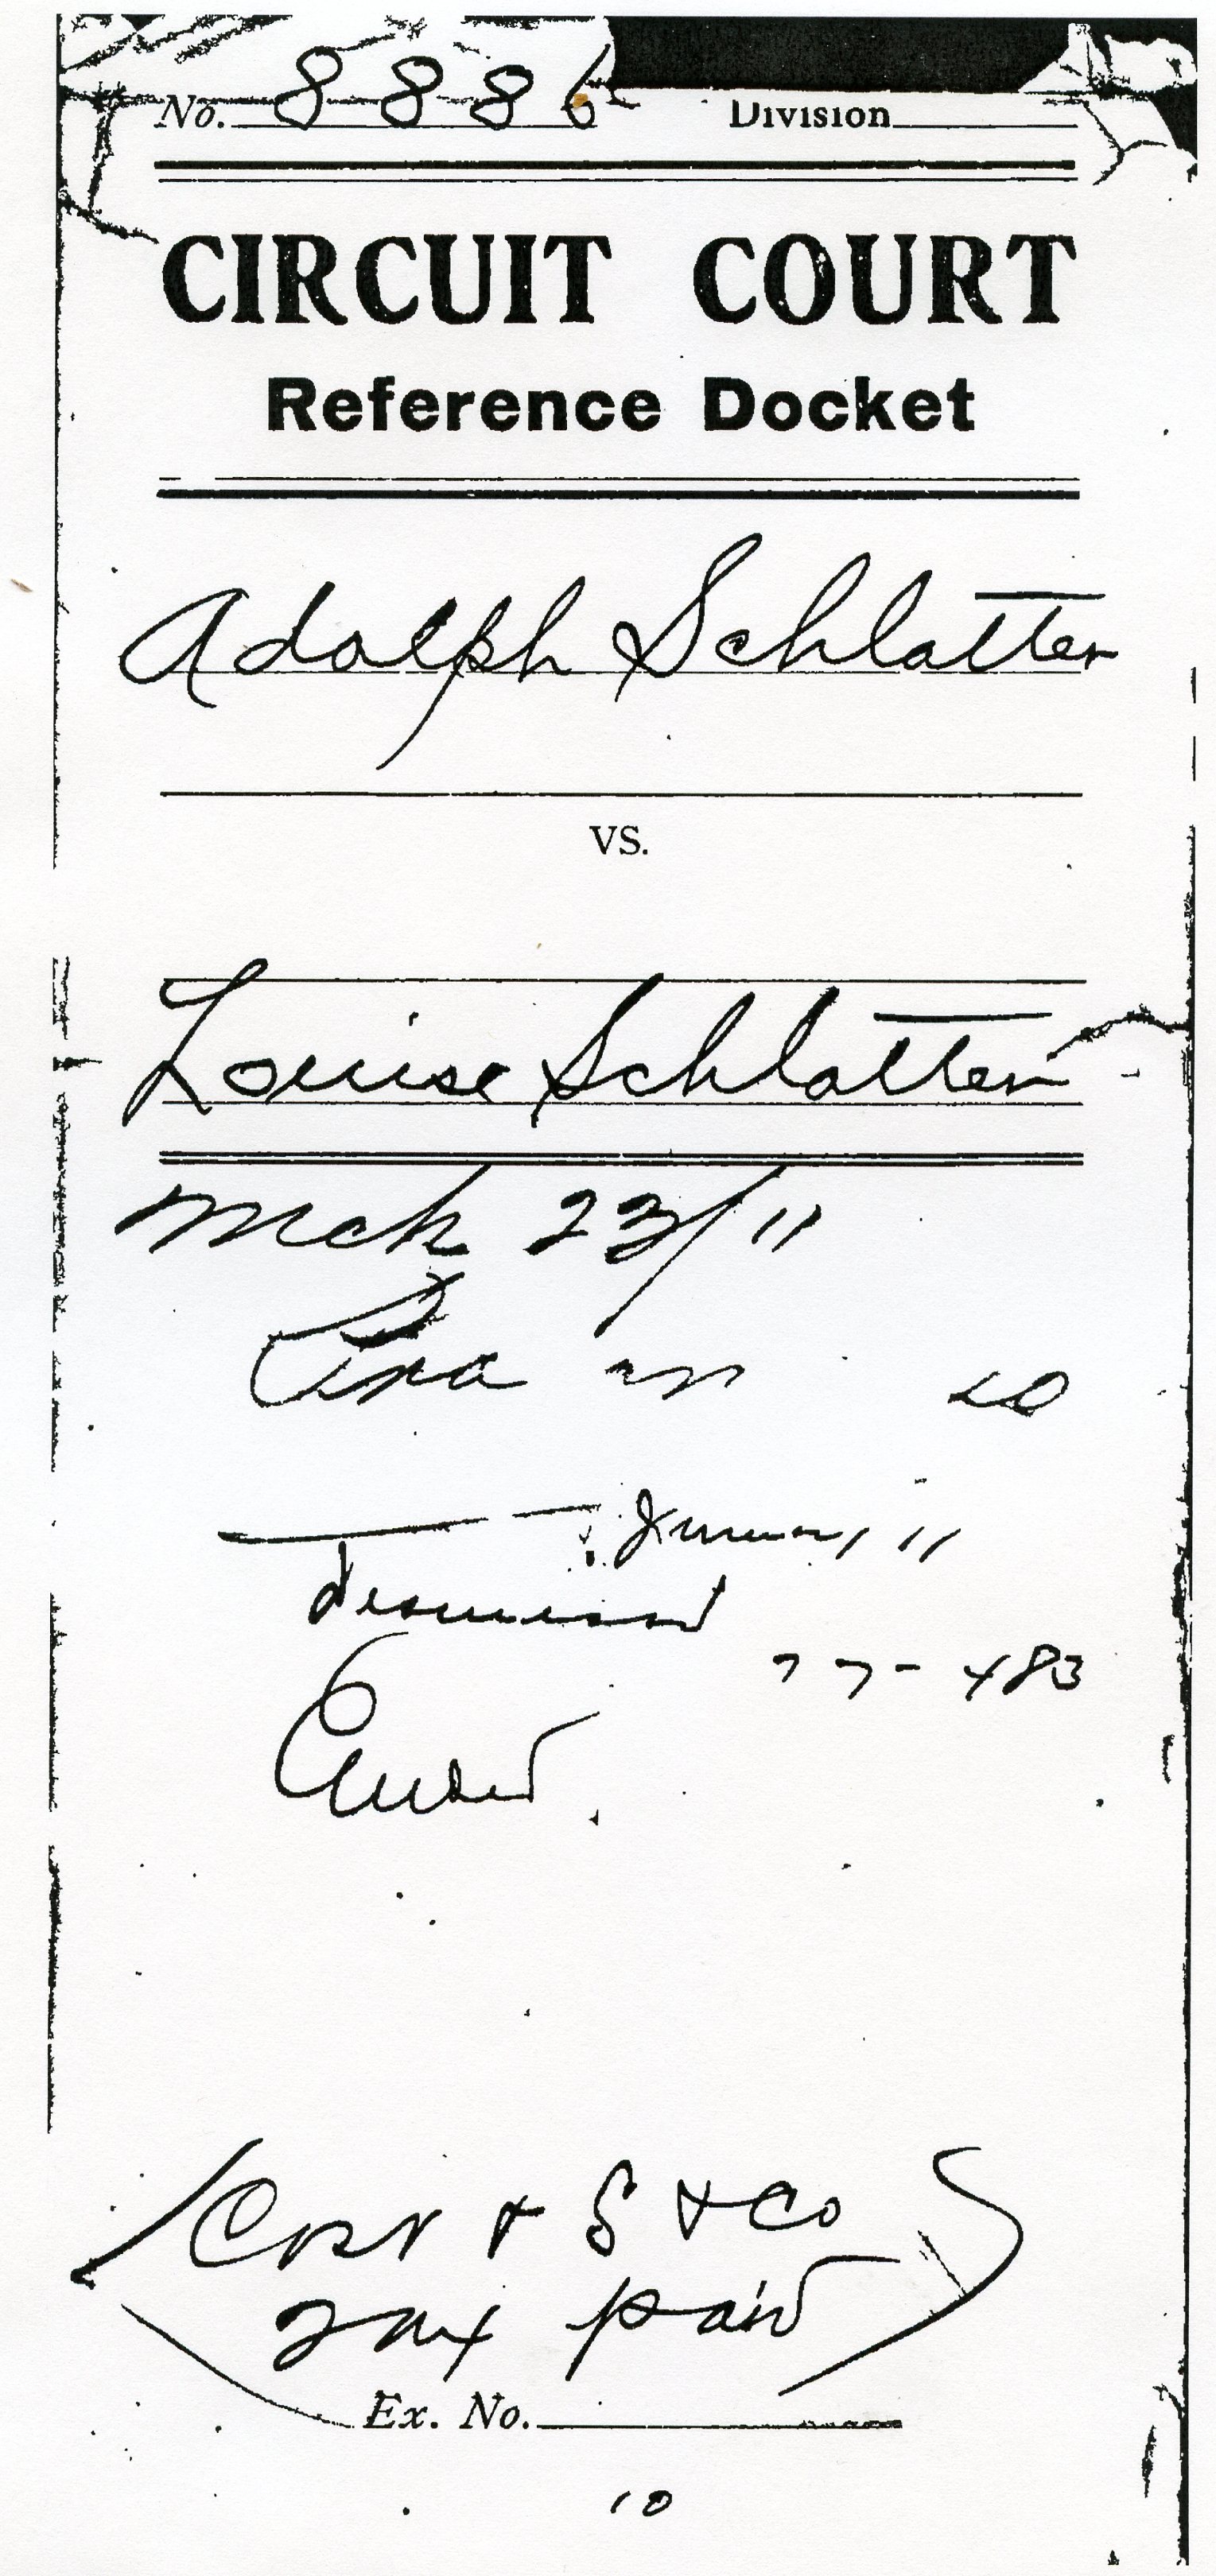 No. 8886 Division
CIRCUIT COURT
Reference Docket
Adolph Schlatter
VS.
Louise Schlatter
Mch 23/11
Dismissed
77-483
Cost & S & Co
Tax paid
Ex. No.
10